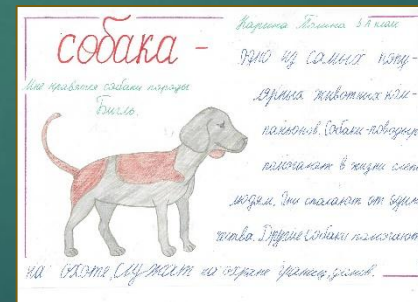 Карина Полина 3 А класс
собака -
это из самых попу-
Мне нравятся собаки породы
Бигль.
лярных животных ком-
паньонов. Собаки-поводыри
помогают в жизни слепым
людям. Они спасают от один
чества. Другие собаки помогают
на охоте, служат на охране границ, домов.